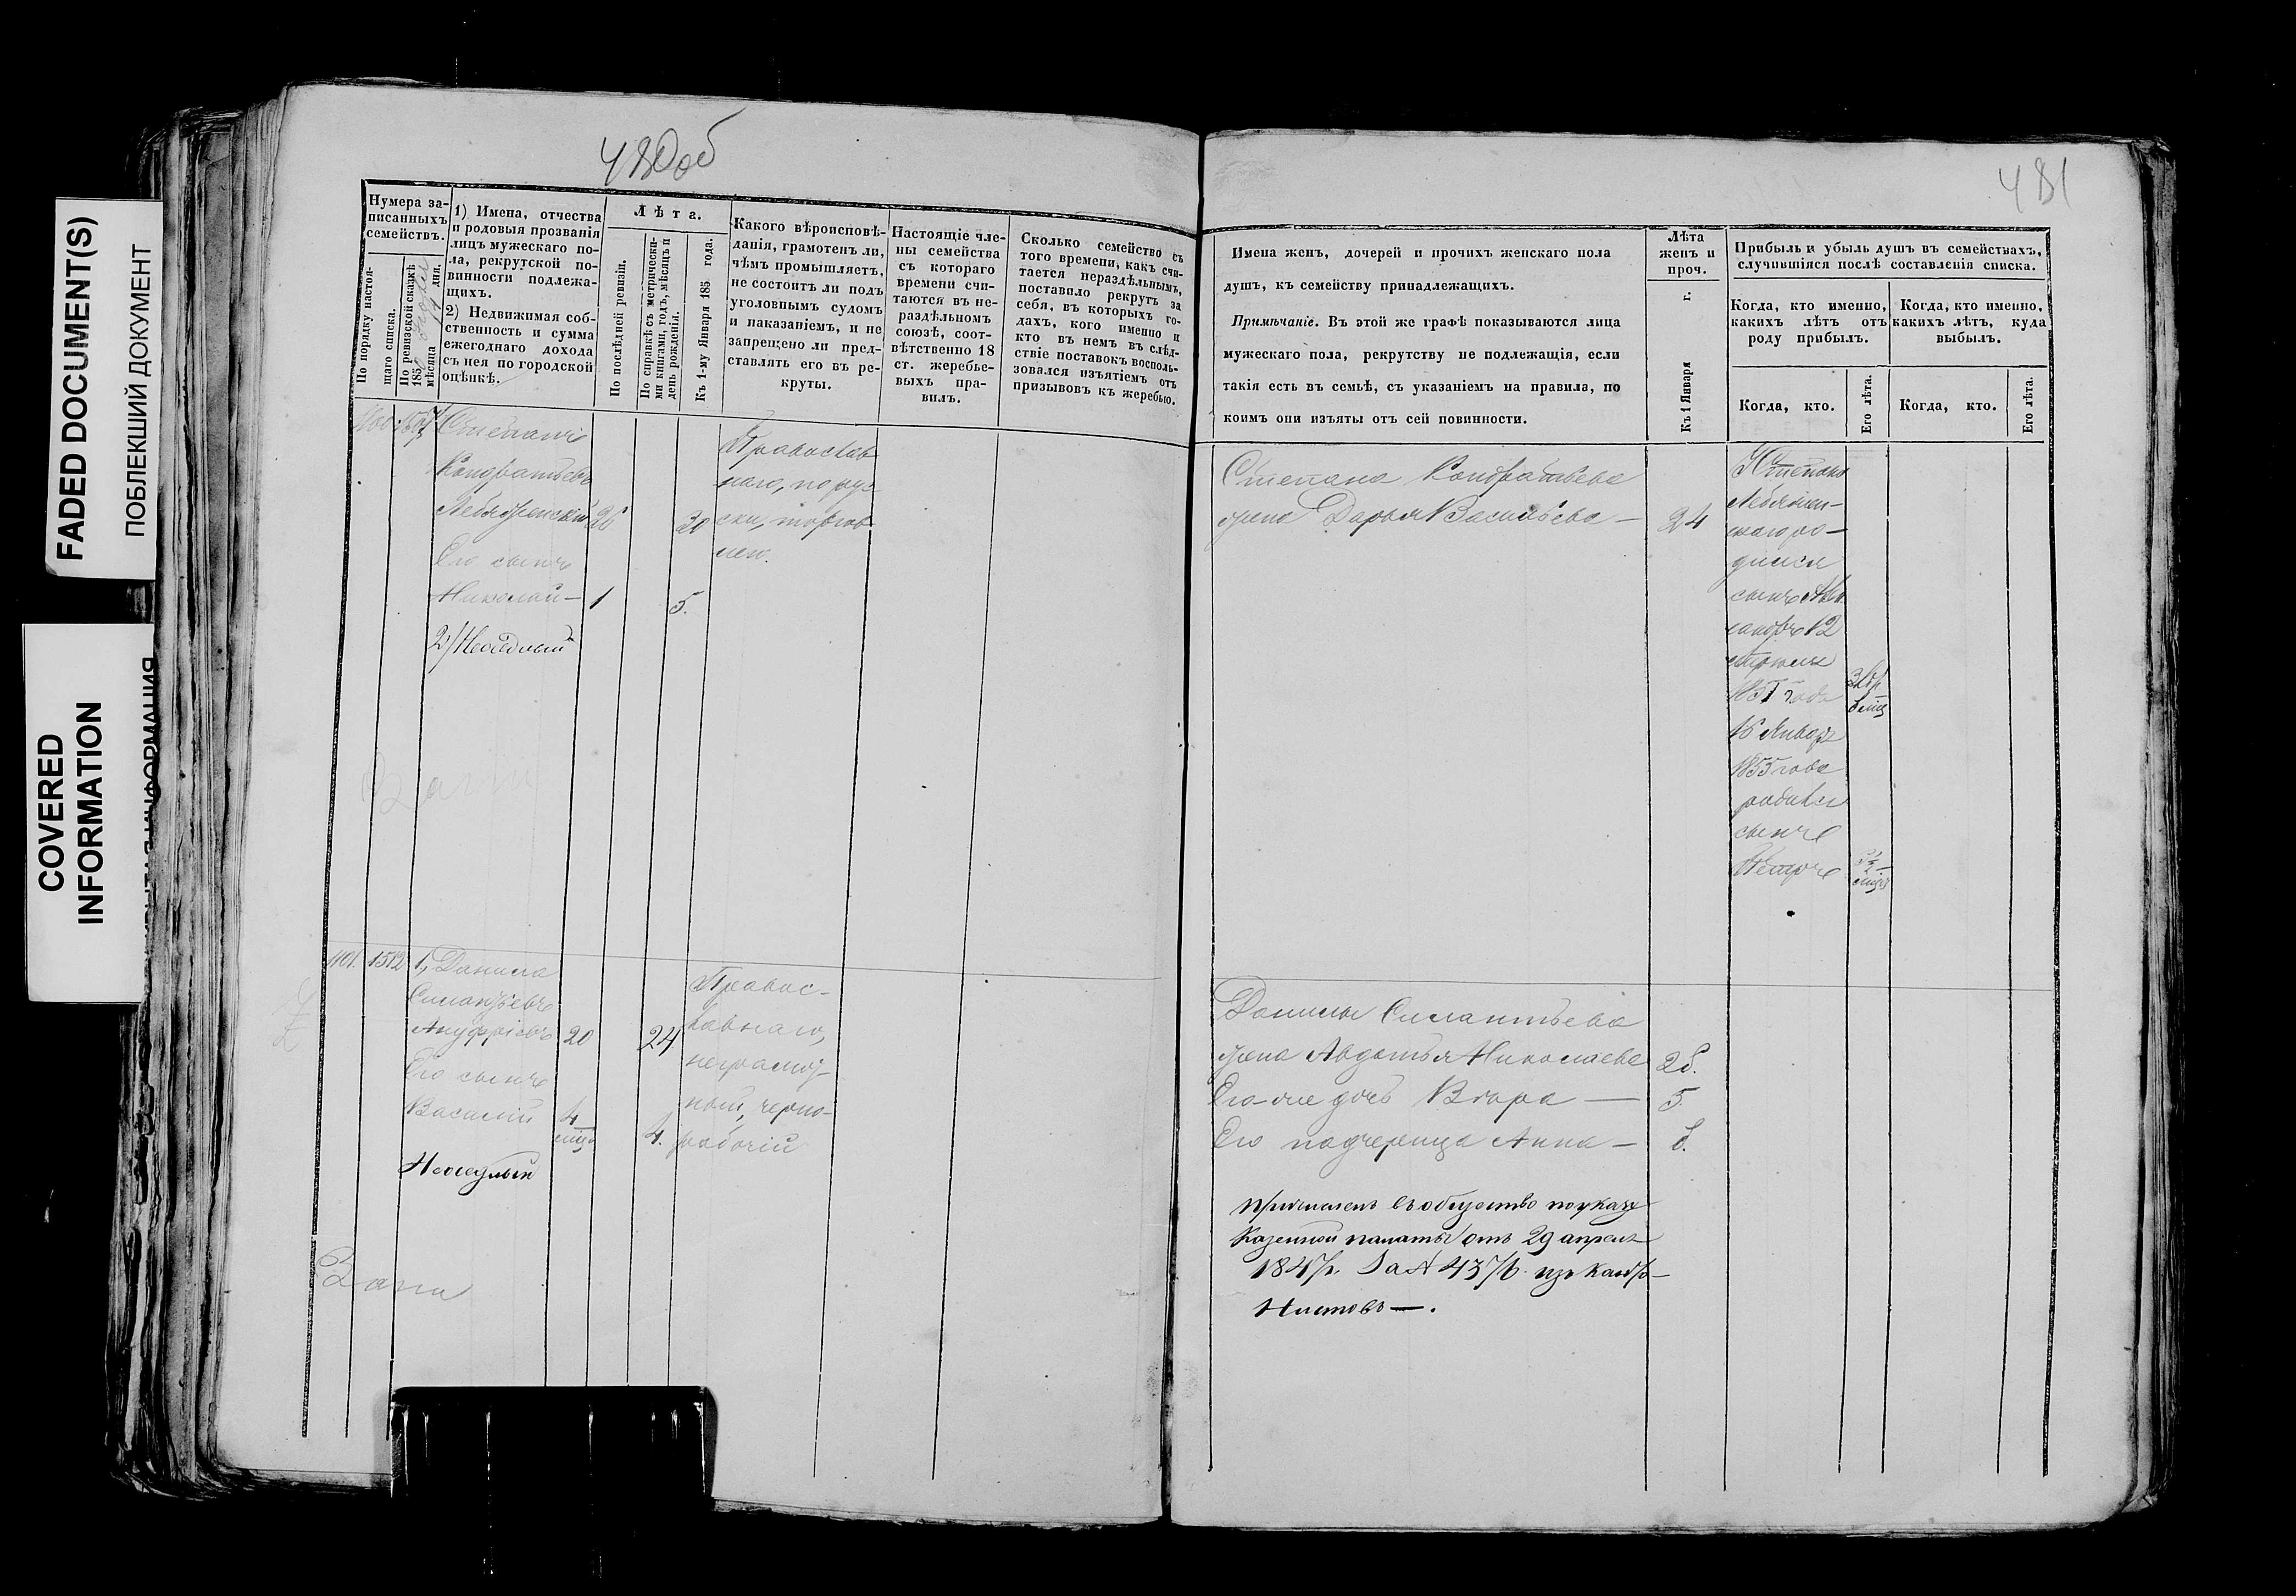 FADED DOCUMENT(S)
ПОБЛЕКШИЙ ДОКУМЕНТ
COVERED
INFORMATION
480об
Нумера за-
писанныхъ
семействъ.
По порядку настоя-
щаго списка.
По ревизской сказкѣ
185
мѣсяца дня.
1) Имена, отчества
и родовыя прозванія
лицъ мужескаго по-
ла, рекрутской по-
винности подлежа-
щихъ.
2) Недвижимая соб-
ственность и сумма
ежегоднаго дохода
съ нея по городской
оцѣнкѣ.
Лѣта.
По послѣдней ревизіи.
По справкѣ съ метрически-
ми книгами, годъ, мѣсяцъ и
день рожденія.
Къ 1-му Января 185 года.
Какого вѣроисповѣ-
данія, грамотенъ ли,
чѣмъ промышляетъ,
не состоитъ ли подъ
уголовнымъ судомъ
и наказаніемъ, и не
запрещено ли пред-
ставлять его въ ре-
круты.
Настоящіе чле-
ны семейства
съ котораго
времени счи-
таются въ не-
раздѣльномъ
союзѣ, соот-
вѣтственно 18
ст. жеребье-
выхъ пра-
вилъ.
Сколько семейство съ
того времени, какъ счи-
тается нераздѣльнымъ,
поставило рекрутъ за
себя, въ которыхъ го-
дахъ, кого именно и
кто въ немъ въ слѣд-
ствіе поставокъ восполь-
зовался изъятіемъ отъ
призывовъ къ жеребью.
Степанъ
Кондратьевъ
26
30
Его сынъ
Николай — 1
5.
2) Неоседлый
Православ
наго, по рус
ски, торгов
лею.
401. 1512 1, Данила
Силантьевъ
Ануфріевъ 20
24
Его сынъ
Василій 4
мѣс
4.
Неоседлый
Правос-
лавнаго,
неграмот-
ный, черно-
рабочій
481
Имена женъ, дочерей и прочихъ женскаго пола
душъ, къ семейству принадлежащихъ.
Примѣчаніе. Въ этой же графѣ показываются лица
мужескаго пола, рекрутству не подлежащія, если
такія есть въ семьѣ, съ указаніемъ на правила, по
коимъ они изъяты отъ сей повинности.
Лѣта
женъ и
проч.
Къ 1 Января г.
Прибыль и убыль душъ въ семействахъ,
случившіяся послѣ составленія списка.
Когда, кто именно,
какихъ лѣтъ отъ
роду прибылъ.
Когда, кто именно,
какихъ лѣтъ, куда
выбылъ.
Когда, кто.
Его лѣта.
Когда, кто.
Его лѣта.
Степана Кондратьева
жена Дарья Васильева — 24
У Степана
Лебяжен-
скаго ро-
дился
сынъ
12
1851 года
16 Января
1855 года
родился
сынъ
Петръ
Данилы Силантьева
жена Авдотья Николаева 26.
Его-же дочь Вѣра — 5.
Его падчерица Анна — 6.
Причисленъ въ общество по указу
Казенной палаты отъ 29 апреля
1847г. За № 4376 изъ Кантo-
нистовъ —.